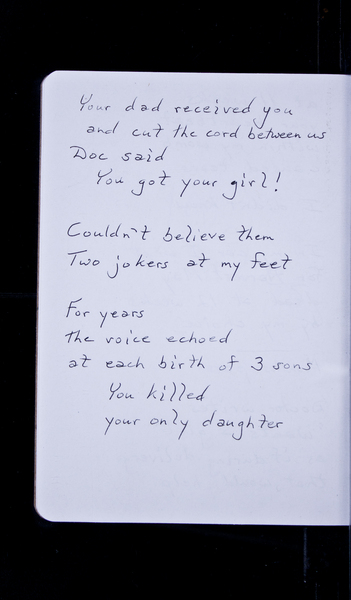 Your dad received you
and cut the cord between us
Doc said
You got your girl!
Couldn't believe them
Two jokers at my feet
For years
the voice echoed
at each birth of 3 sons
You killed
your only daughter